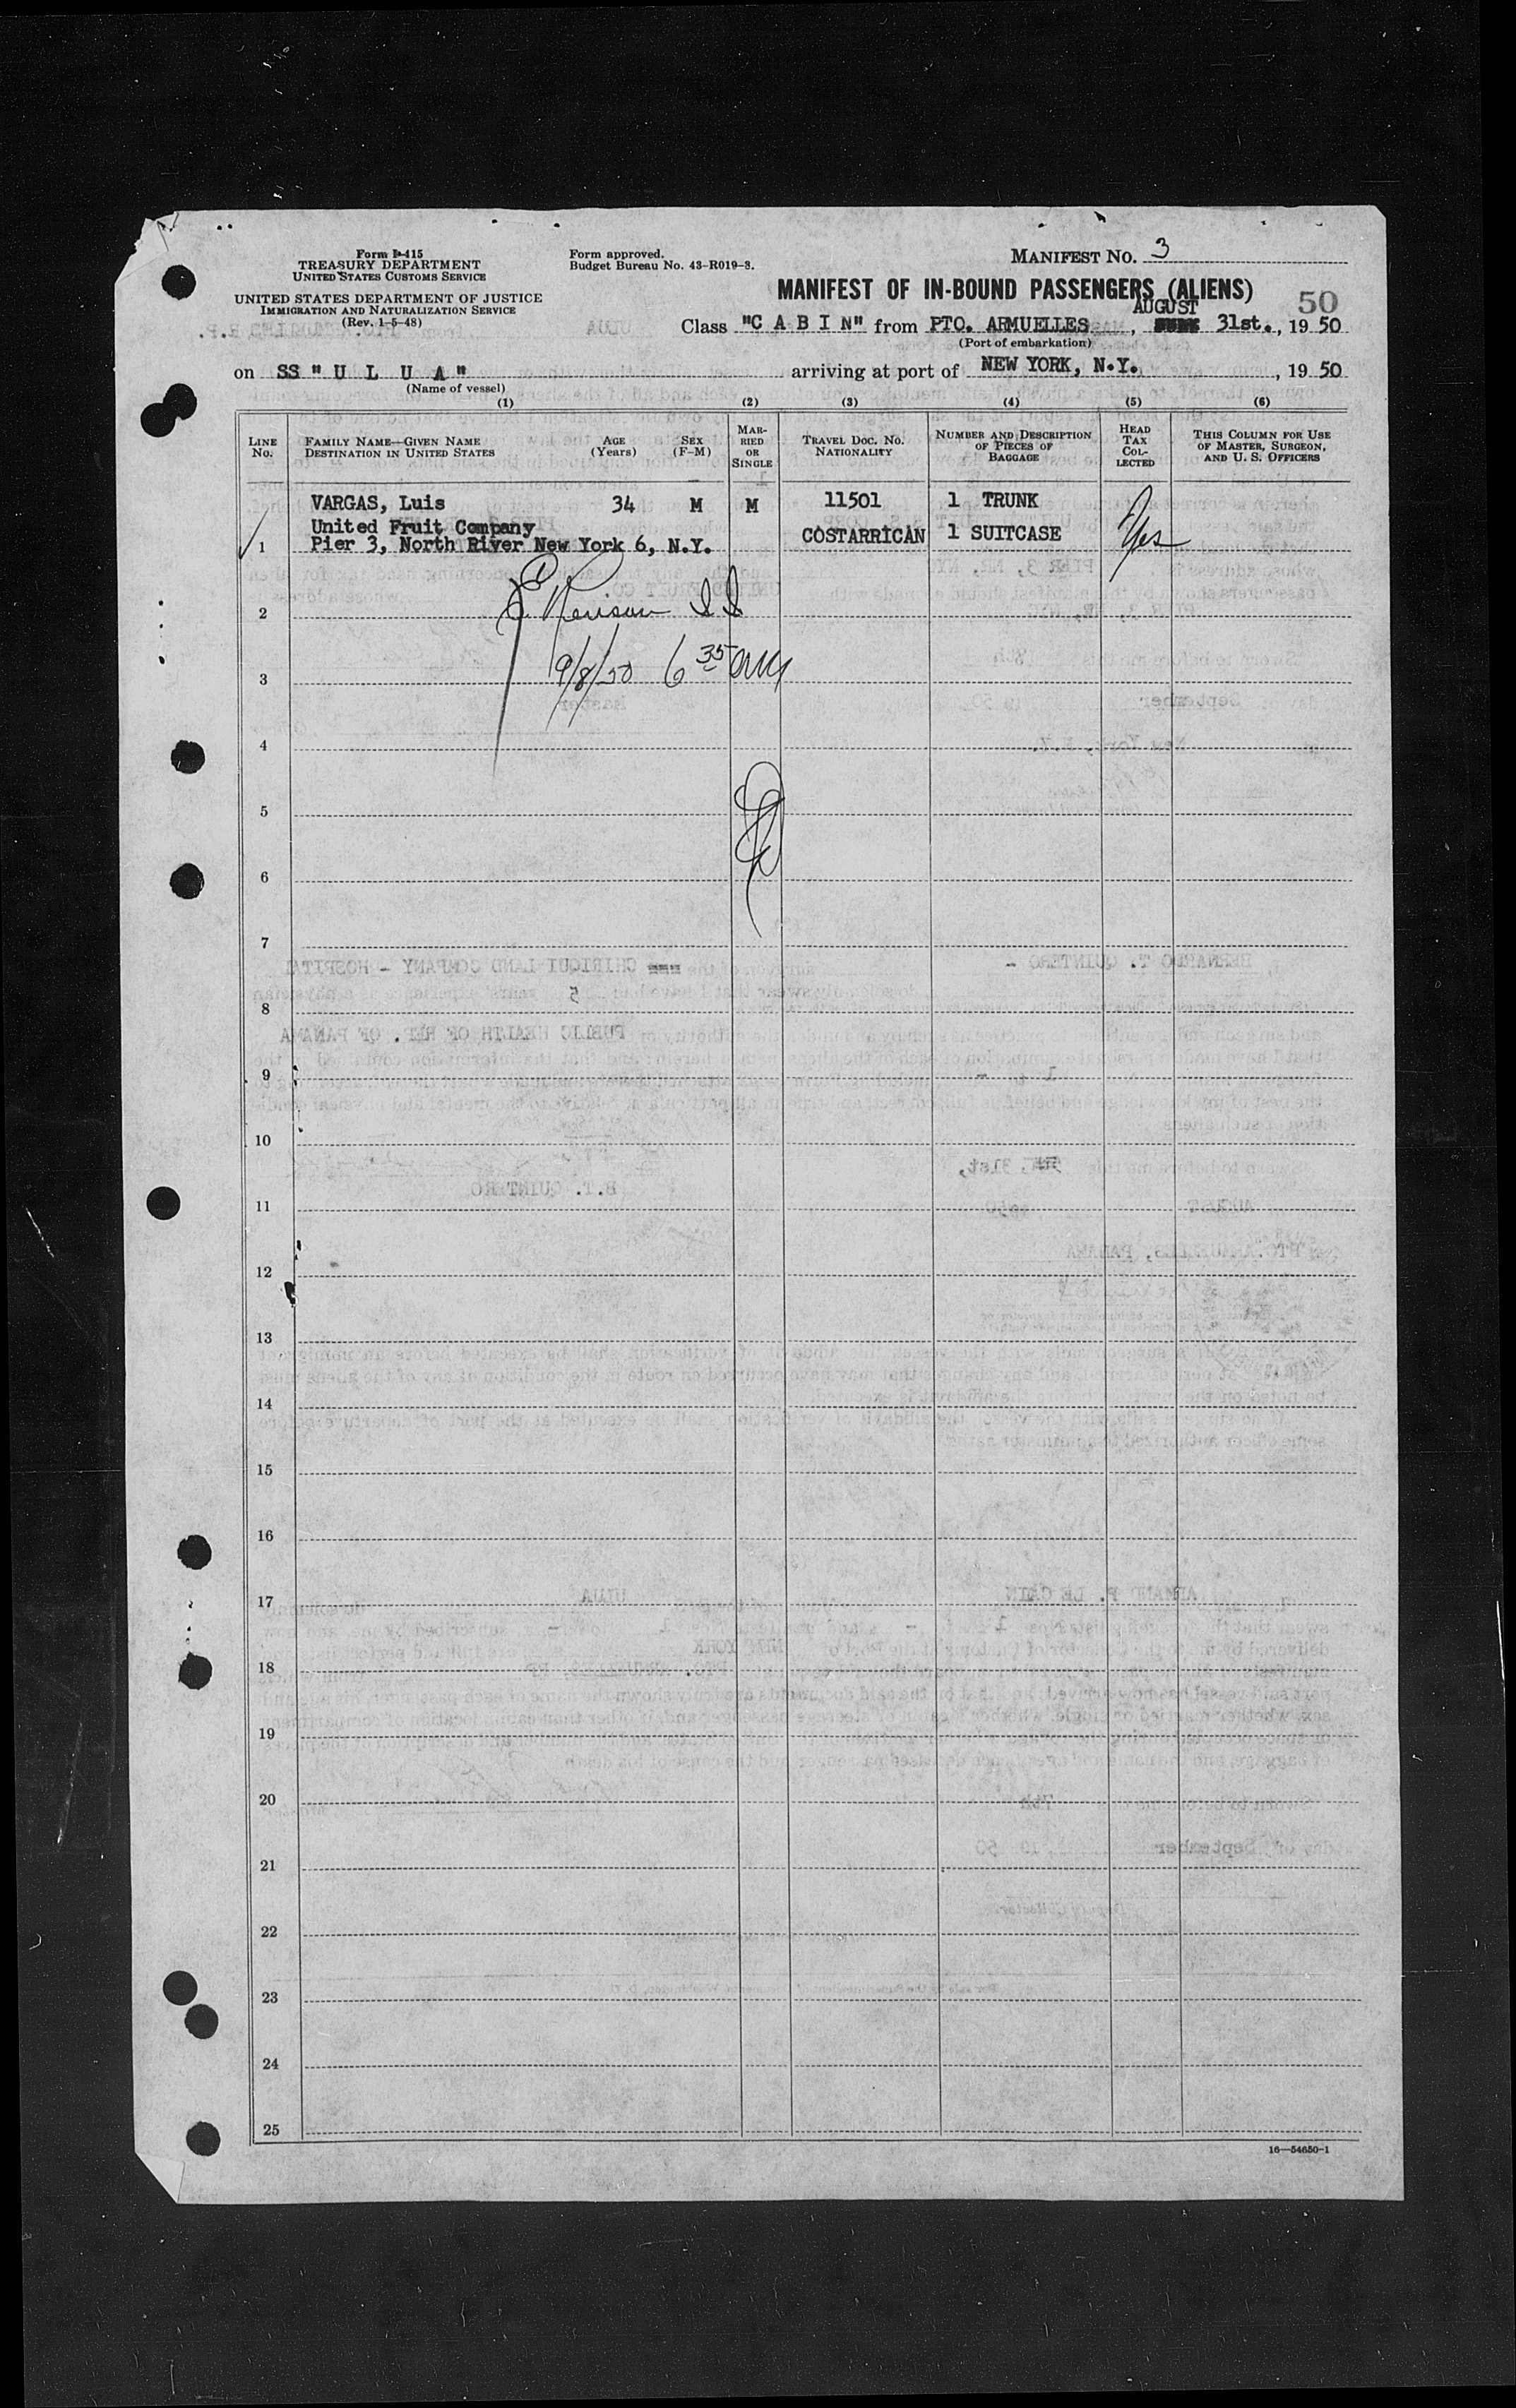 Form I-415
TREASURY DEPARTMENT
UNITED STATES CUSTOMS SERVICE
UNITED STATES DEPARTMENT OF JUSTICE
IMMIGRATION AND NATURALIZATION SERVICE
(Rev. 1-5-48)
Form approved.
Budget Bureau No. 43-R019-3.
MANIFEST NO. 3
MANIFEST OF IN-BOUND PASSENGERS (ALIENS)
50
AUGUST
Class "C A B I N" from PTO. ARMUELLES, 31st., 19 50
(Port of embarkation)
on SS "U L U A" arriving at port of NEW YORK, N.Y. , 19 50
(Name of vessel)
(1) (2) (3) (4) (5) (6)
LINE No. FAMILY NAME—GIVEN NAME DESTINATION IN UNITED STATES AGE (Years) SEX (F-M) MARRIED OR SINGLE TRAVEL DOC. NO. NATIONALITY NUMBER AND DESCRIPTION OF PIECES OF BAGGAGE HEAD TAX COLLECTED THIS COLUMN FOR USE OF MASTER, SURGEON, AND U. S. OFFICERS
VARGAS, Luis 34 M M 11501 1 TRUNK
United Fruit Company COSTARRICAN 1 SUITCASE Yes
1 Pier 3, North River New York 6, N.Y.
2
9/8/50 6 35 am
3
4
5
6
7
8
9
10
11
12
13
14
15
16
17
18
19
20
21
22
23
24
25
16—54650-1